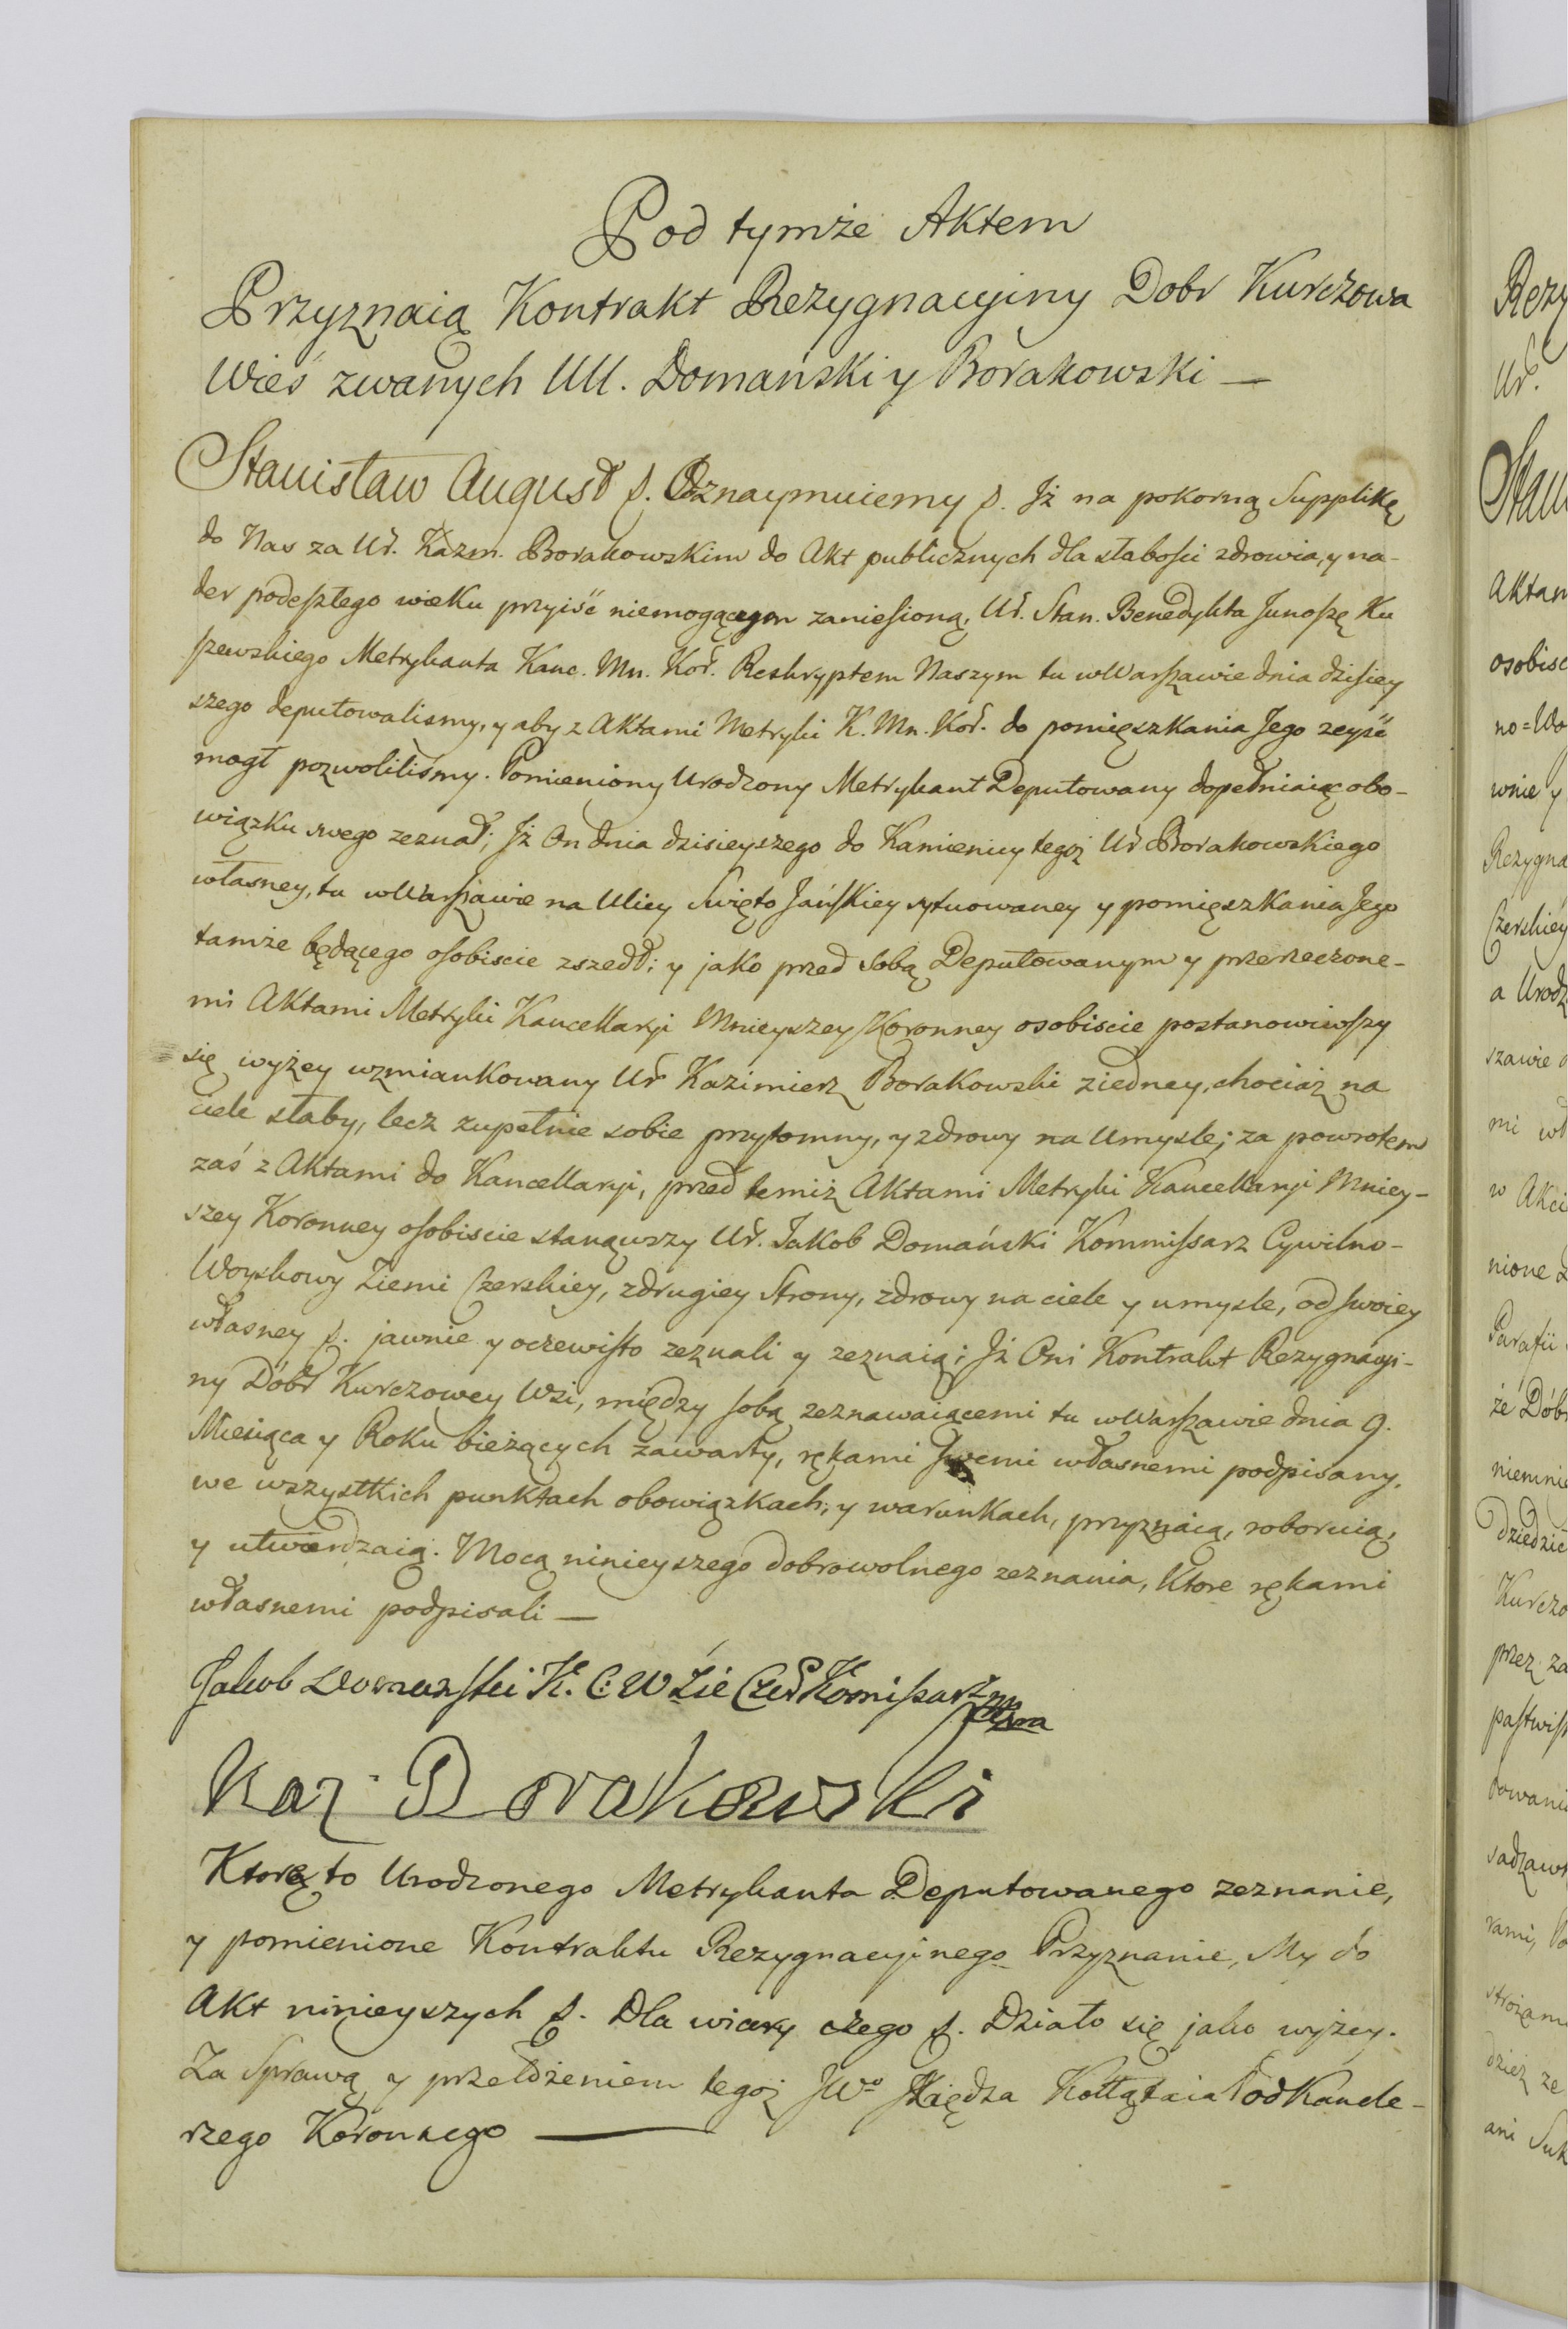 Pod tymże Aktem
Przyznaią Kontrakt Rezygnacyiny Dobr Kurczowa
Wieś zwanych UU. Domański y Borakowski —
Stanisław August p. Oznaymuiemy p. Jż na pokorną Supplikę
do Nas za Ur. Kazm. Borakowskim do Akt publicznych dla słabości zdrowia, y na-
der podeszłego wieku przyiść niemogącym zaniesioną, Ur. Stan. Benedykta Junoszę Ku
szewskiego Metrykanta Kanc. Mn. Kor. Reskryptem Naszym tu w Warszawie dnia dzisiey
szego deputowalismy, y aby z Aktami Metryki K. Mn. Kor. do pomięszkania Jego zeyść
mogł pozwolilismy. Pomieniony Urodzony Metrykant Deputowany dopełniaiąc obo-
wiązku swego zeznał; Jż On dnia dzisieyszego do Kamienicy tegoż Ur Borakowskiego
własney, tu w Warszawie na Ulicy Swięto Jańskiey sytuowaney y pomięszkania Jego
tamże będącego osobiscie zszedł; y jako przed Sobą Deputowanym y przerzeczone-
mi Aktami Metryki Kancellaryi Mnieyszey Koronney osobiscie postanowiwszy
się wyżey wzmiankowany Ur Kazimierz Borakowski ziedney, chociaż na
ciele słaby, lecz zupełnie sobie przytomny, y zdrowy na Umysle; za powrotem
zaś z Aktami do Kancellaryi, przed temiż Aktami Metryki Kancellaryi Mniey-
szey Koronney osobiscie stanąwszy Ur. Jakob Domański Kommissarz Cywilno-
Woyskowy Ziemi Czerskiey, zdrugiey Strony, zdrowy na ciele y umysle, od swoiey
własney p. jawnie y oczewisto zeznali y zeznaią; Jż Oni Kontrakt Rezygnacyi-
ny Dóbr Kurczowey Wsi, między sobą zeznawaiącemi tu w Warszawie dnia 9.
Miesiąca y Roku bieżących zawarty, rękami swemi własnemi podpisany,
we wszystkich punktach obowiązkach, y warunkach, przyznaią, roboruią,
y utwierdzaią. Mocą ninieyszego dobrowolnego zeznania, Ktore rękami
własnemi podpisali —
Jakob Domanski K. C: W Zie Czer Komissarz
Kaz. Borakowski
Ktore to Urodzonego Metrykanta Deputowanego zeznanie,
y pomienione Kontraktu Rezygnacyinego Przyznanie, My do
Akt ninieyszych p. Dla wiary czego p. Działo się jako wyżey.
Za Sprawą y przełożeniem tegoż JWo Xiędza Kołłątaia Podkancle-
rzego Koronnego —